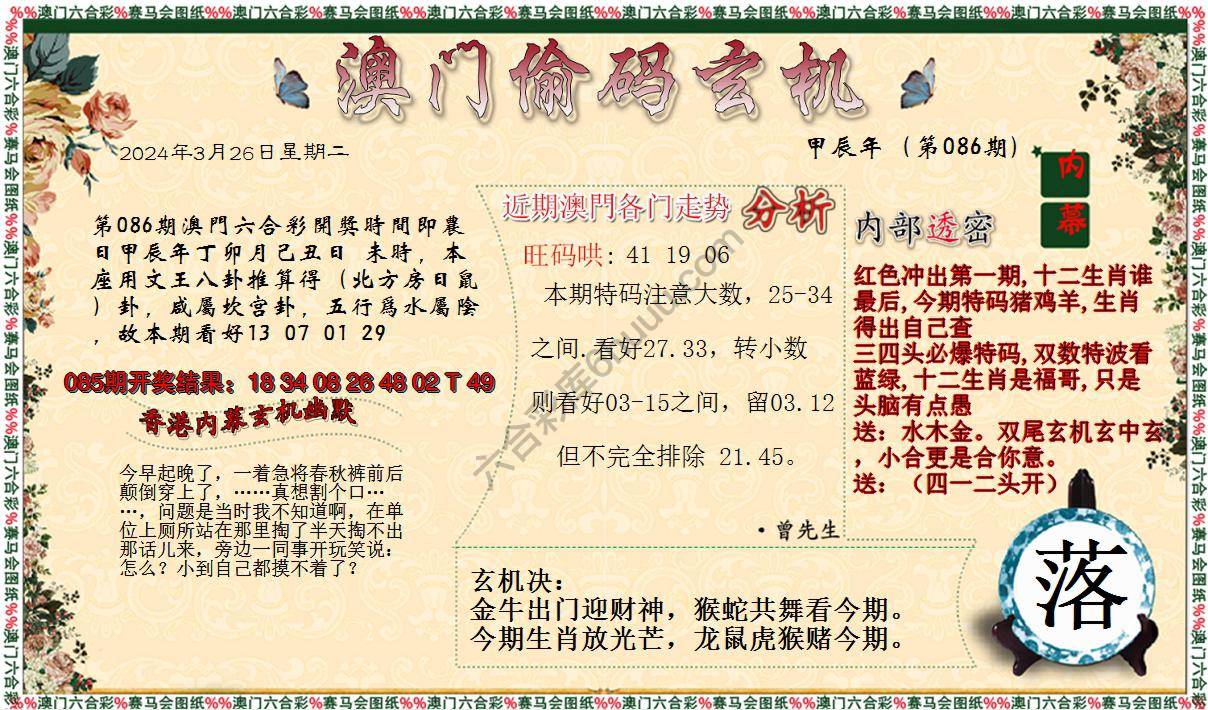 %%澳门六合彩%赛马会图纸%%澳门六合彩%赛马会图纸%%澳门六合彩%赛马会图纸%%澳门六合彩%赛马会图纸%%澳门六合彩%赛马会图纸%%澳门六合彩%赛马会图纸%%
澳门偷码玄机
2024年3月26日星期二
甲辰年（第086期）
内幕
第086期澳門六合彩開獎時間即農
日甲辰年丁卯月己丑日 未時，本
座用文王八卦推算得（北方房日鼠
）卦，咸屬坎宫卦，五行爲水屬陰
，故本期看好13 07 01 29
085期开奖结果：18 34 08 26 48 02 T 49
香港内幕玄机幽默
今早起晚了，一着急将春秋裤前后
颠倒穿上了，……真想割个口…
…，问题是当时我不知道啊，在单
位上厕所站在那里掏了半天掏不出
那话儿来，旁边一同事开玩笑说：
怎么？小到自己都摸不着了？
近期澳門各门走势 分析
旺码哄: 41 19 06
本期特码注意大数，25-34
之间.看好27.33，转小数
则看好03-15之间，留03.12
但不完全排除 21.45。
·曾先生
内部透密
红色冲出第一期,十二生肖谁
最后,今期特码猪鸡羊,生肖
得出自己查
三四头必爆特码,双数特波看
蓝绿,十二生肖是福哥,只是
头脑有点愚
送：水木金。双尾玄机玄中玄
，小合更是合你意。
送：（四一二头开）
玄机决：
金牛出门迎财神，猴蛇共舞看今期。
今期生肖放光芒，龙鼠虎猴赌今期。
落
%%澳门六合彩%赛马会图纸%%澳门六合彩%赛马会图纸%%澳门六合彩%赛马会图纸%%澳门六合彩%赛马会图纸%%澳门六合彩%赛马会图纸%%澳门六合彩%赛马会图纸%%